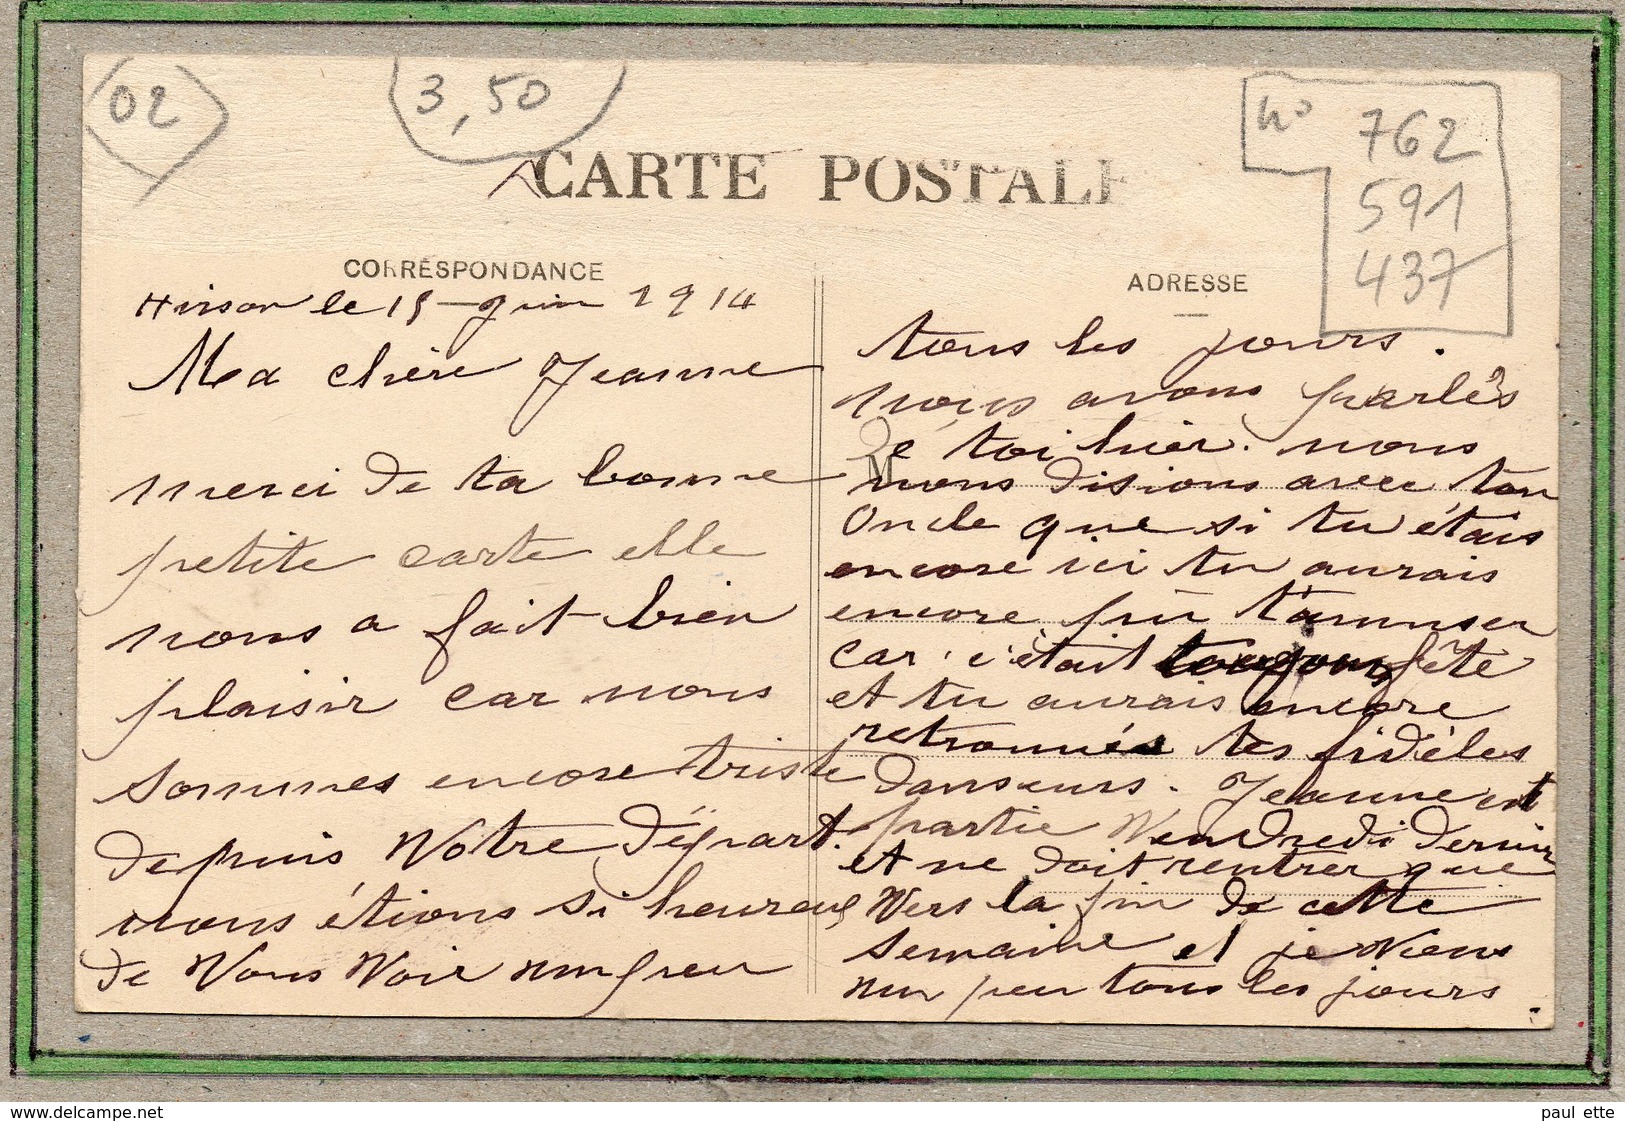 02
3,50
n° 762
591
437
CARTE POSTALE
CORRESPONDANCE
ADRESSE
Hirson le 15 Juin 1914
Ma chère Jeanne
merci de ta bonne
petite carte elle
nous a fait bien
plaisir car nous
sommes encore triste
depuis Votre Départ.
nous étions si heureux
de Vous Voir un peu
tous les jours.
nous avons parlés
de toi hier. nous
nous disions avec ton
Oncle que si tu étais
encore ici tu aurais
encore pû t'amuser
car c'était toujours fête
et tu aurais encore
retrouvés tes fidèles
danseurs. Jeanne est
partie Vendredi dernier
et ne doit rentrer que
Vers la fin de cette
semaine et je Viens
un peu tous les jours.
delcampe.net
paul ette